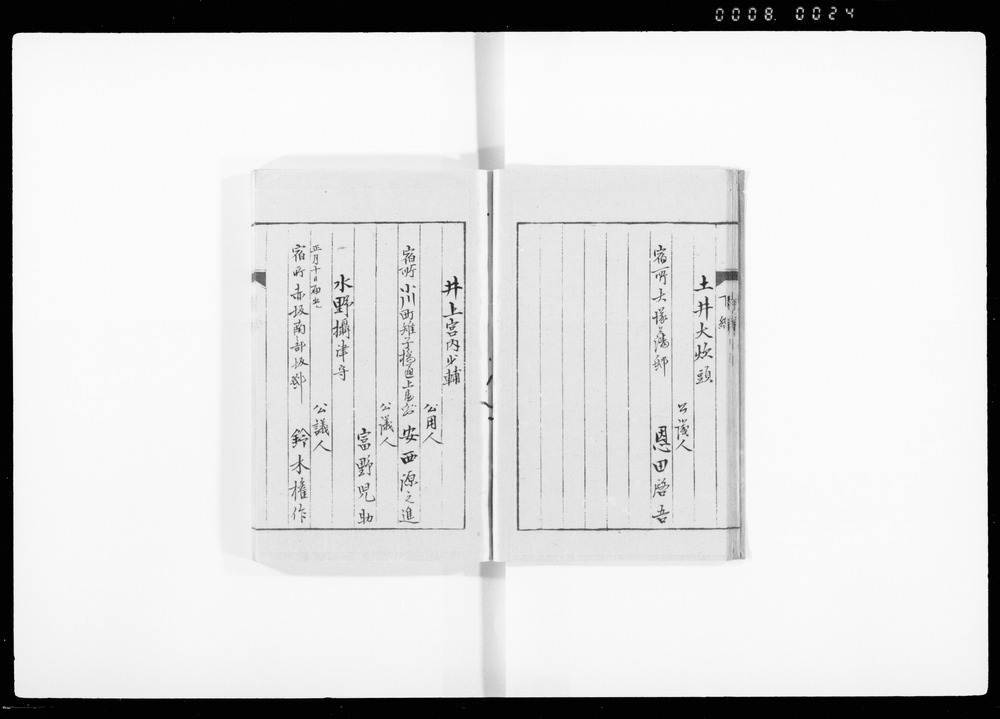 0008. 0024
下総
土井大炊頭
公議人
恩田啓吾
宿所大塚藩邸
井上宮内少輔
公用人
安西源之進
宿所小川町雉子橋通上屋敷
公議人
富野児助
水野攝津守
公議人
鈴木権作
正月十日届出
宿所赤坂南部坂邸